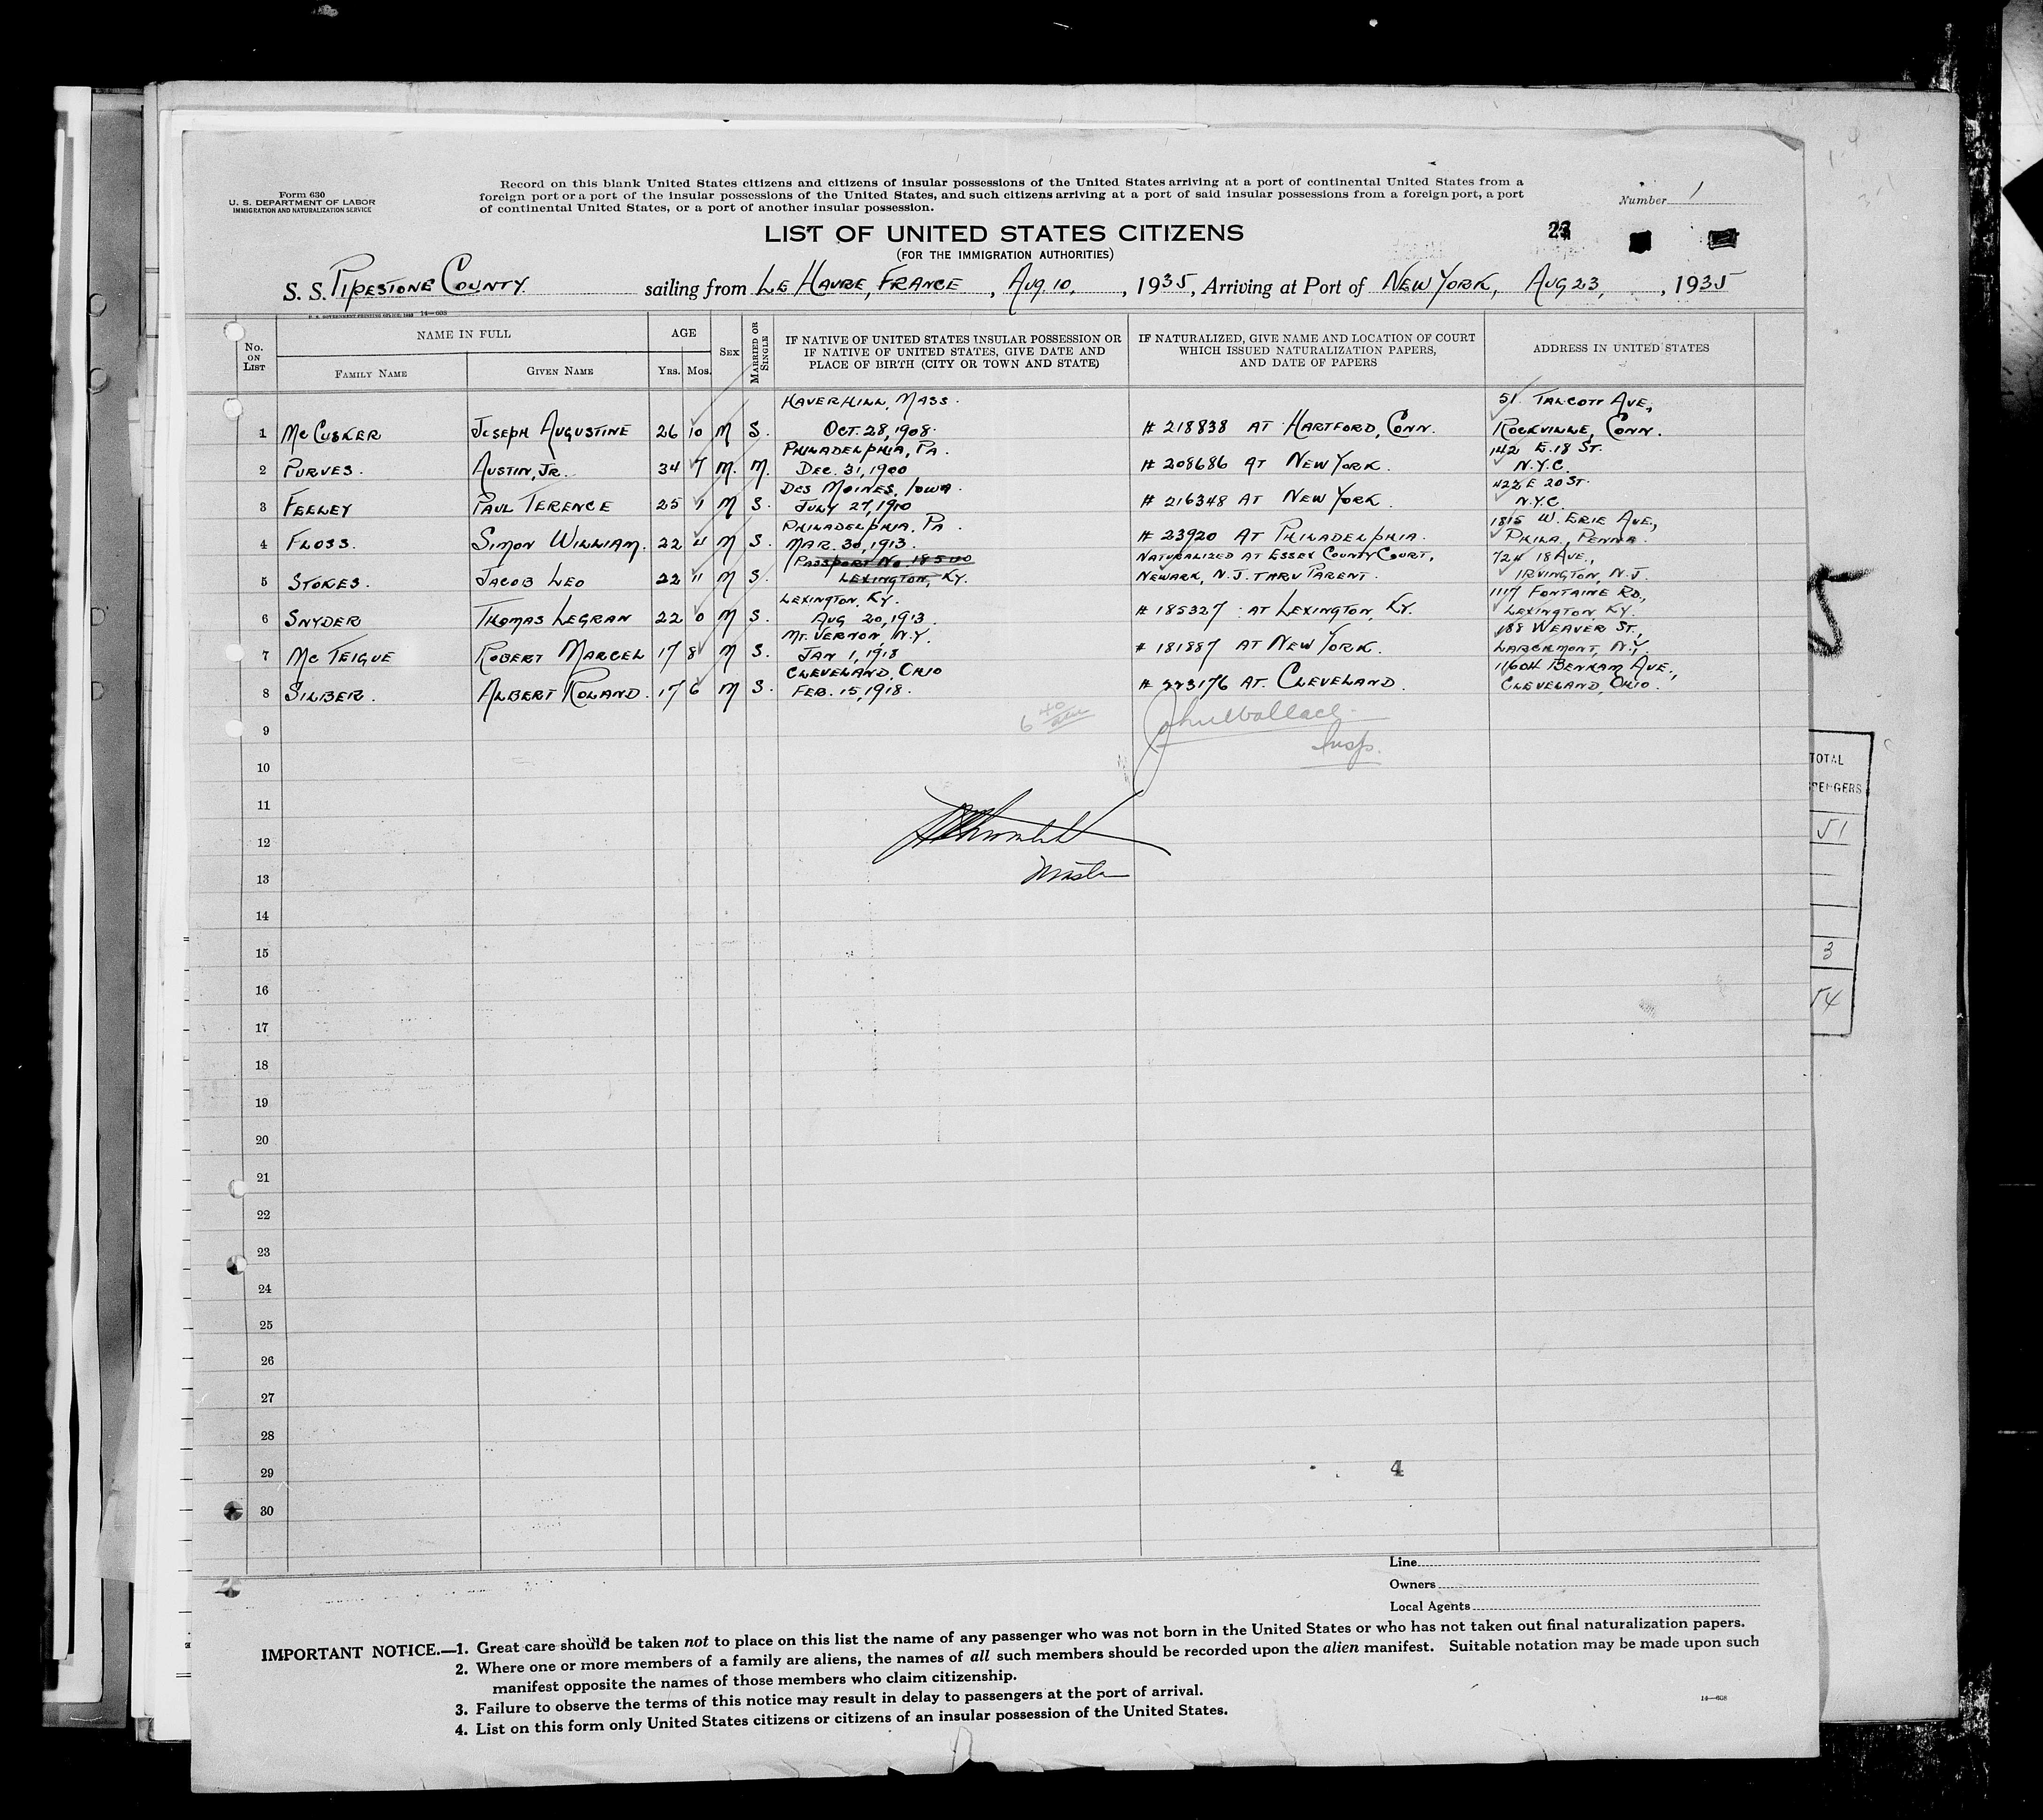 Form 630
U. S. DEPARTMENT OF LABOR
IMMIGRATION AND NATURALIZATION SERVICE
Record on this blank United States citizens and citizens of insular possessions of the United States arriving at a port of continental United States from a
foreign port or a port of the insular possessions of the United States, and such citizens arriving at a port of said insular possessions from a foreign port, a port
of continental United States, or a port of another insular possession.
Number 1
LIST OF UNITED STATES CITIZENS
(FOR THE IMMIGRATION AUTHORITIES)
23
S. S. PIPESTONE COUNTY sailing from LE HAVRE, FRANCE, AUG. 10, 1935, Arriving at Port of NEW YORK, AUG 23, 1935
U. S. GOVERNMENT PRINTING OFFICE: 14—608
No. ON LIST
NAME IN FULL
FAMILY NAME
GIVEN NAME
AGE
YRS. MOS.
SEX
MARRIED OR SINGLE
IF NATIVE OF UNITED STATES INSULAR POSSESSION OR
IF NATIVE OF UNITED STATES, GIVE DATE AND
PLACE OF BIRTH (CITY OR TOWN AND STATE)
IF NATURALIZED, GIVE NAME AND LOCATION OF COURT
WHICH ISSUED NATURALIZATION PAPERS,
AND DATE OF PAPERS
ADDRESS IN UNITED STATES
HAVERHILL, MASS. 51 TALCOTT AVE,
1 MCCUSKER JOSEPH AUGUSTINE 26 10 M S. OCT. 28, 1908. # 218838 AT HARTFORD, CONN. ROCKVILLE, CONN.
PHILADELPHIA, PA. 142 E. 18 ST.
2 PURVES. AUSTIN, JR. 34 7 M. M. DEC. 31, 1900 # 208686 AT NEW YORK. N.Y.C.
DES MOINES, IOWA. 422 E 20 ST.
3 FEELEY PAUL TERENCE 25 1 M S. JULY 27, 1910 # 216348 AT NEW YORK. N.Y.C.
PHILADELPHIA, PA. 1815 W. ERIE AVE.,
4 FLOSS. SIMON WILLIAM. 22 4 M S. MAR. 30, 1913. # 23920 AT PHILADELPHIA. PHILA., PENNA.
PASSPORT NO. NATURALIZED AT ESSEX COUNTY COURT, 724 18 AVE.,
5 STOKES. JACOB LEO 22 11 M S. LEXINGTON, KY. NEWARK, N.J. THRU PARENT. IRVINGTON, N.J.
LEXINGTON, KY. 1117 FONTAINE RD.,
6 SNYDER THOMAS LEGRAN 22 0 M S. AUG 20, 1913. # 185327 AT LEXINGTON, KY. LEXINGTON KY.
MT. VERNON, N.Y. 188 WEAVER ST.,
7 MC TEIGUE ROBERT MARCEL 17 8 M S. JAN 1, 1918 # 181887 AT NEW YORK. LARCHMONT, N.Y.
CLEVELAND, OHIO 11604 BENHAM AVE.,
8 SILBER. ALBERT ROLAND. 17 6 M S. FEB. 15, 1918. # 223176 AT CLEVELAND. CLEVELAND, OHIO.
9
John Wallace
Insp.
10
11
12
Master
13
14
15
16
17
18
19
20
21
22
23
24
25
26
27
28
29
4
30
TOTAL
51
3
54
Line
Owners
Local Agents
IMPORTANT NOTICE.—1. Great care should be taken not to place on this list the name of any passenger who was not born in the United States or who has not taken out final naturalization papers.
2. Where one or more members of a family are aliens, the names of all such members should be recorded upon the alien manifest. Suitable notation may be made upon such
manifest opposite the names of those members who claim citizenship.
3. Failure to observe the terms of this notice may result in delay to passengers at the port of arrival.
4. List on this form only United States citizens or citizens of an insular possession of the United States.
14—608